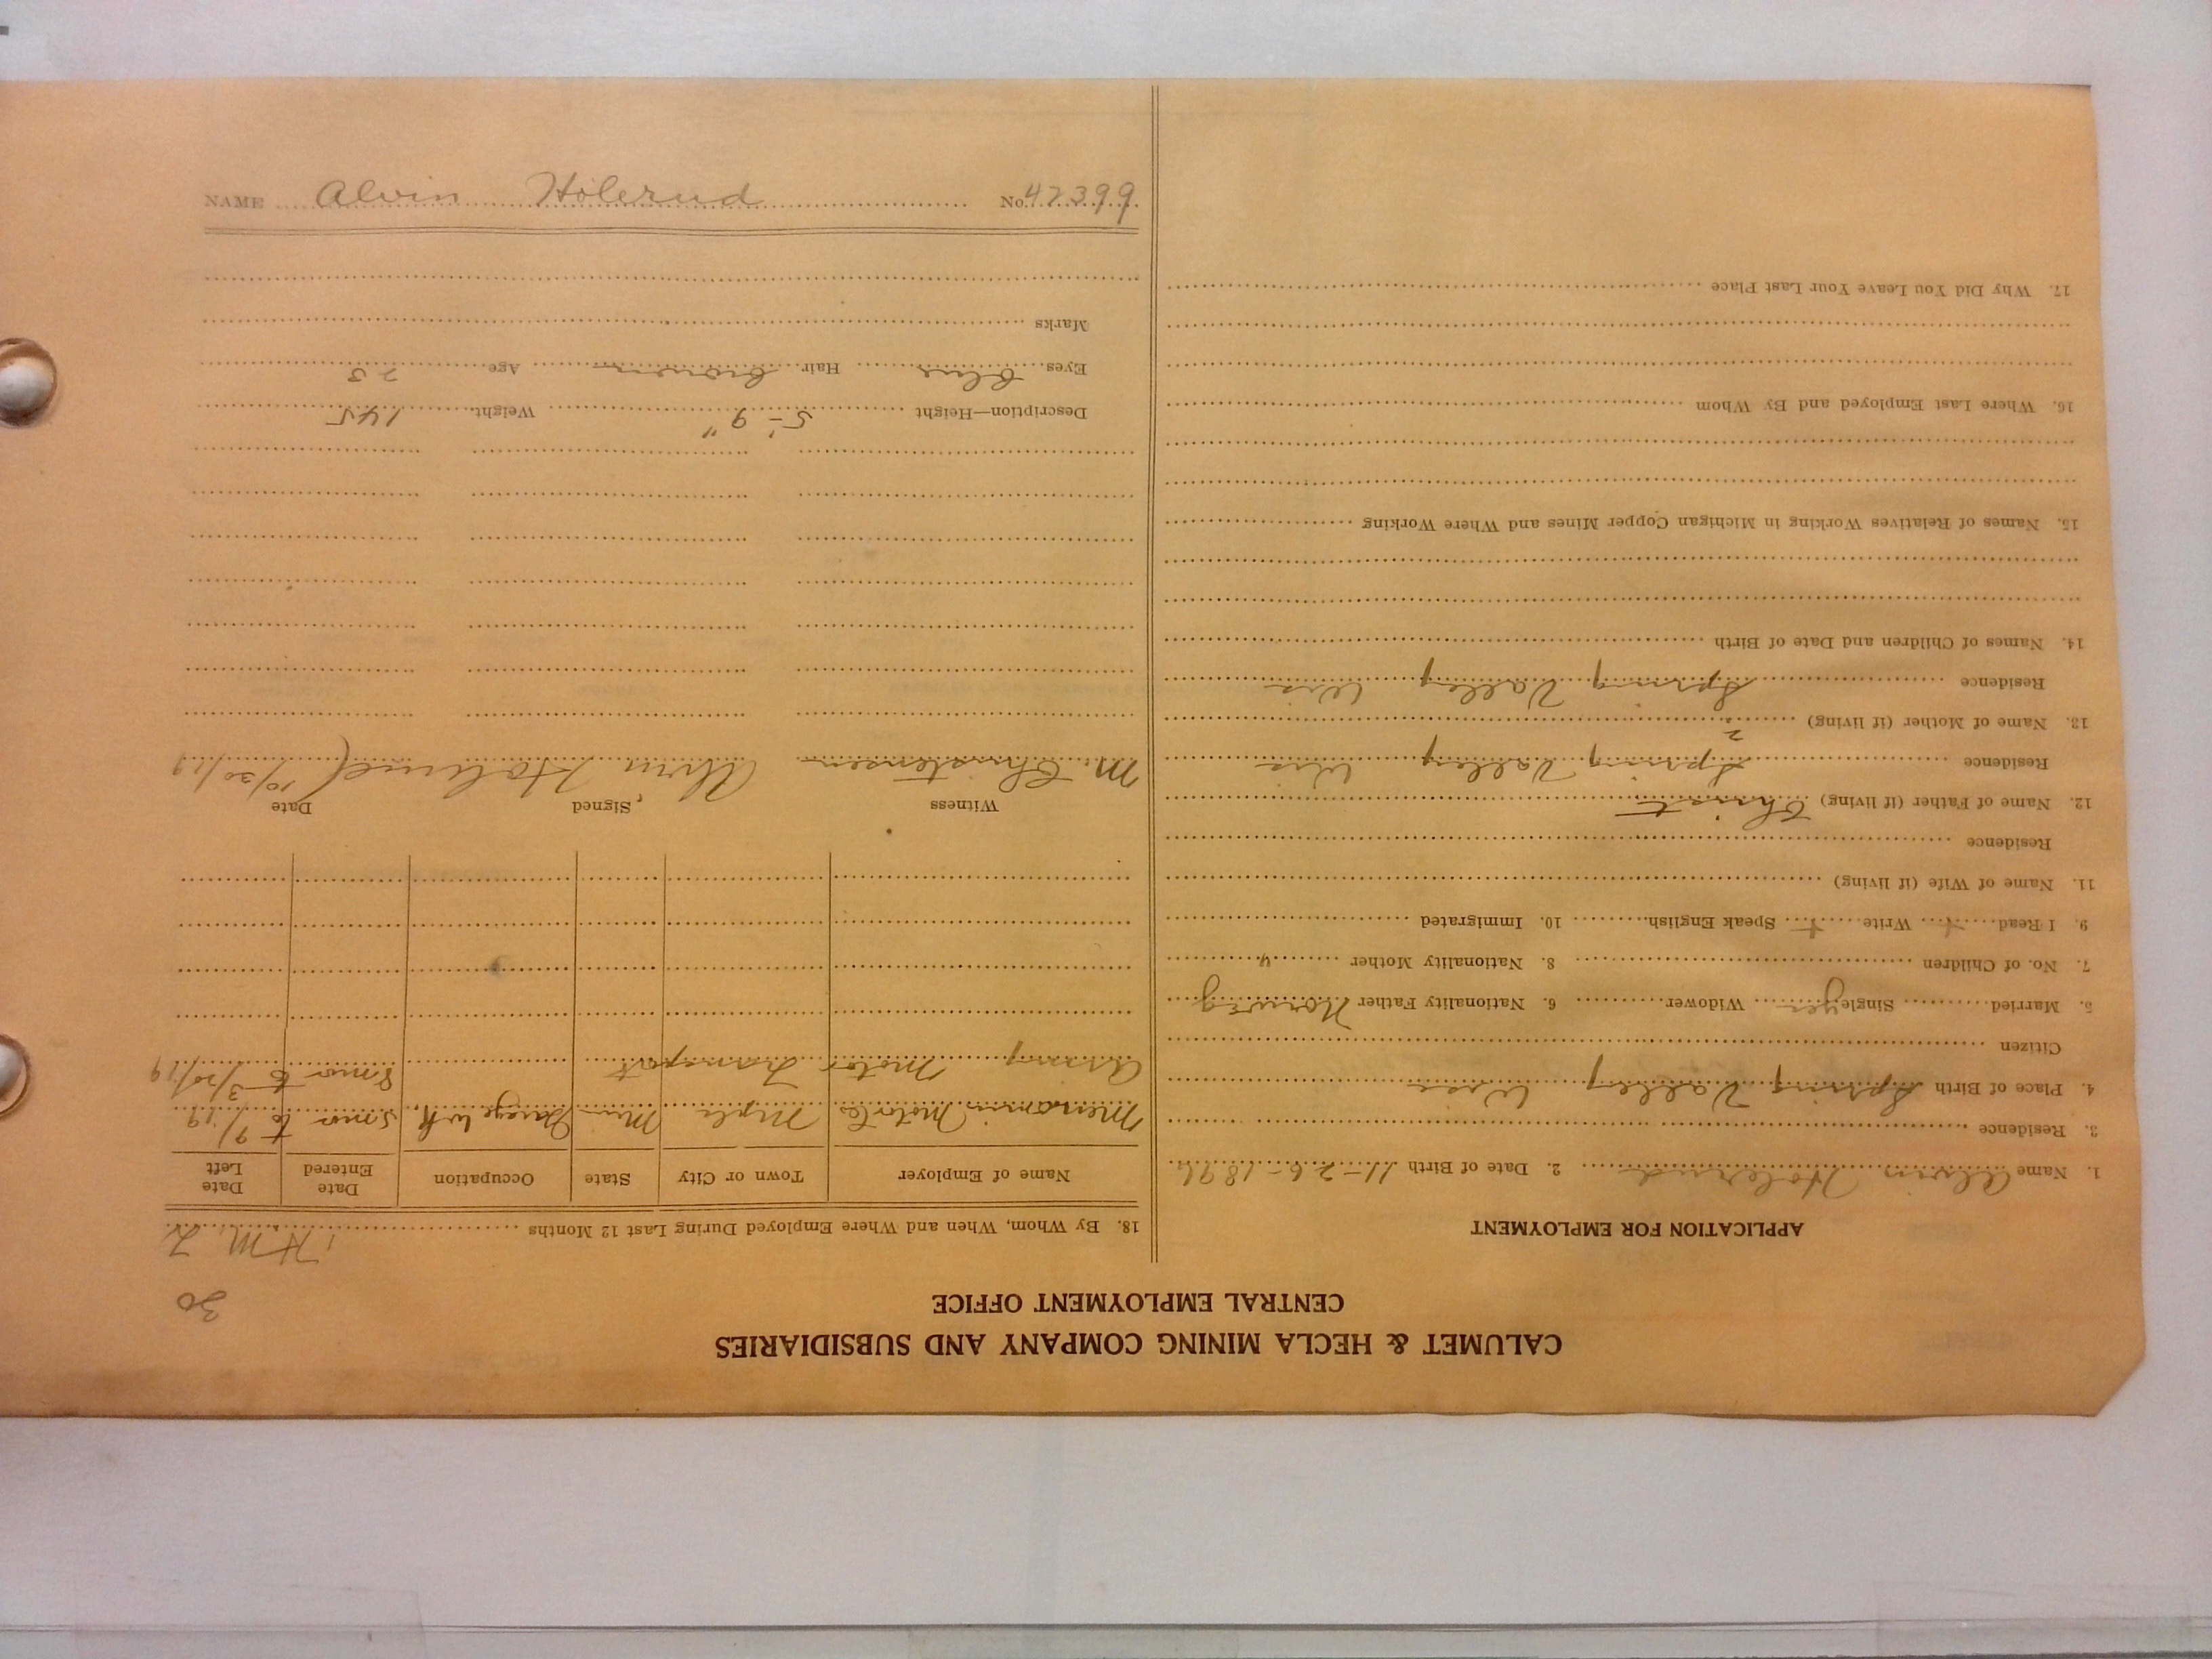 CALUMET & HECLA MINING COMPANY AND SUBSIDIARIES
CENTRAL EMPLOYMENT OFFICE
30
APPLICATION FOR EMPLOYMENT
1. Name Alvin Holerud 2. Date of Birth 11-26-1896
3. Residence
4. Place of Birth Spring Valley Wisc
Citizen
5. Married Single yes Widower 6. Nationality Father Norweg
7. No. of Children 8. Nationality Mother "
9. I Read + Write + Speak English 10. Immigrated
11. Name of Wife (if living)
Residence
12. Name of Father (if living) Christ
Residence Spring Valley Wis
13. Name of Mother (if living) ?
Residence Spring Valley Wis
14. Names of Children and Date of Birth
15. Names of Relatives Working in Michigan Copper Mines and Where Working
16. Where Last Employed and By Whom
17. Why Did You Leave Your Last Place
18. By Whom, When and Where Employed During Last 12 Months
Name of Employer Town or City State Occupation Date Entered Date Left
Menomin Motor Co Mpls Min Garage Wk. 5 mo to 9/19
Army Motor Transport 8 mo to 3/20/19
Witness Signed Date
M. Christensen Alvin Holerud 10/30/19
Description—Height 5'-9" Weight 145
Eyes Blue Hair brown Age 23
Marks
NAME Alvin Holerud No. 47399